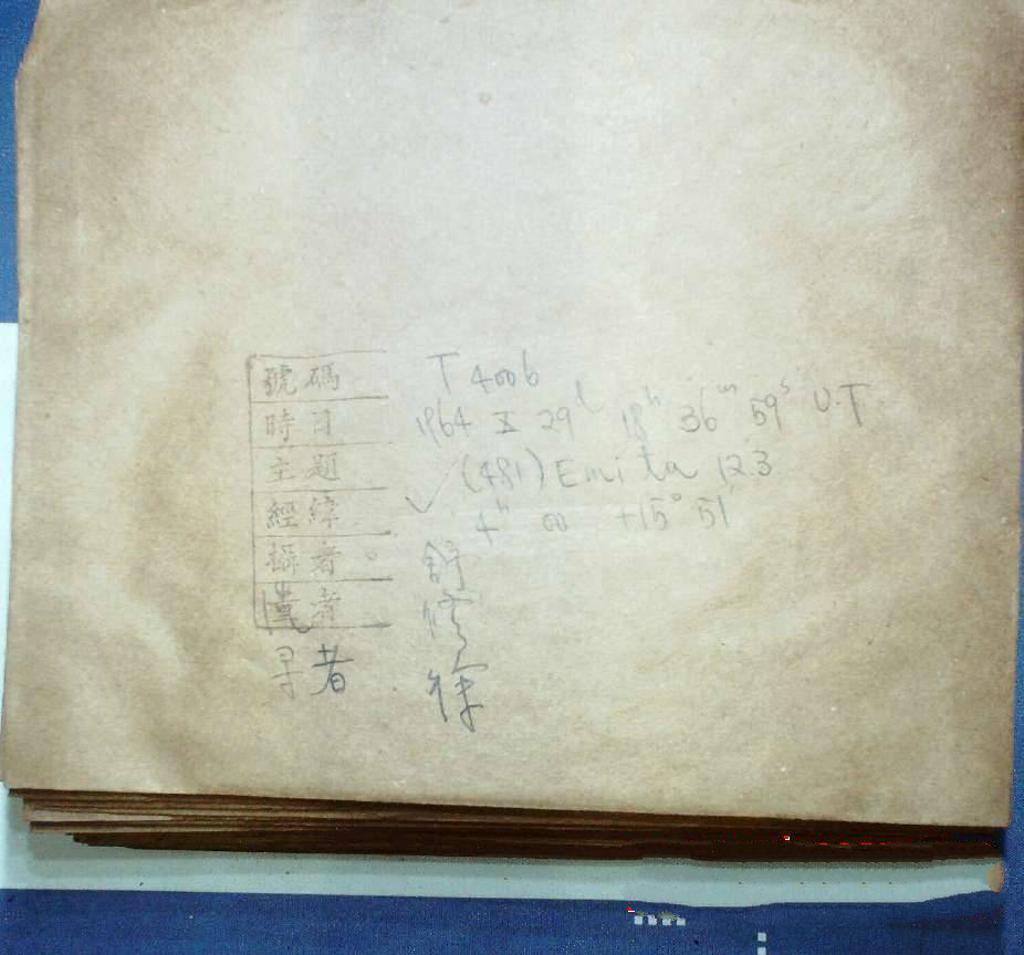 號碼 T 4006
時日 1964 X 29ᵈ 18ʰ 36ᵐ 59ˢ U.T
主題 (481) Emita 12.3
經緯 ✓ 4ʰ 00 +15° 51'
攝者 舒
者
尋者 徐